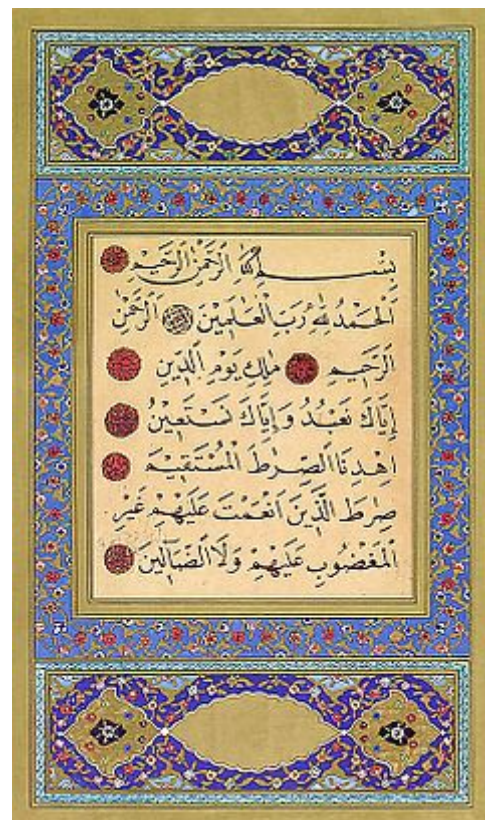 بِسْمِ اللهِ الرَّحْمٰنِ الرَّحِيمِ
اَلْحَمْدُ لِلّٰهِ رَبِّ الْعَالَمِينَ اَلرَّحْمٰنِ
الرَّحِيمِ مَالِكِ يَوْمِ الدِّينِ
اِيَّاكَ نَعْبُدُ وَاِيَّاكَ نَسْتَعِينُ
اِهْدِنَا الصِّرَاطَ الْمُسْتَقِيمَ
صِرَاطَ الَّذِينَ اَنْعَمْتَ عَلَيْهِمْ غَيْرِ
الْمَغْضُوبِ عَلَيْهِمْ وَلَا الضَّٓالِّينَ